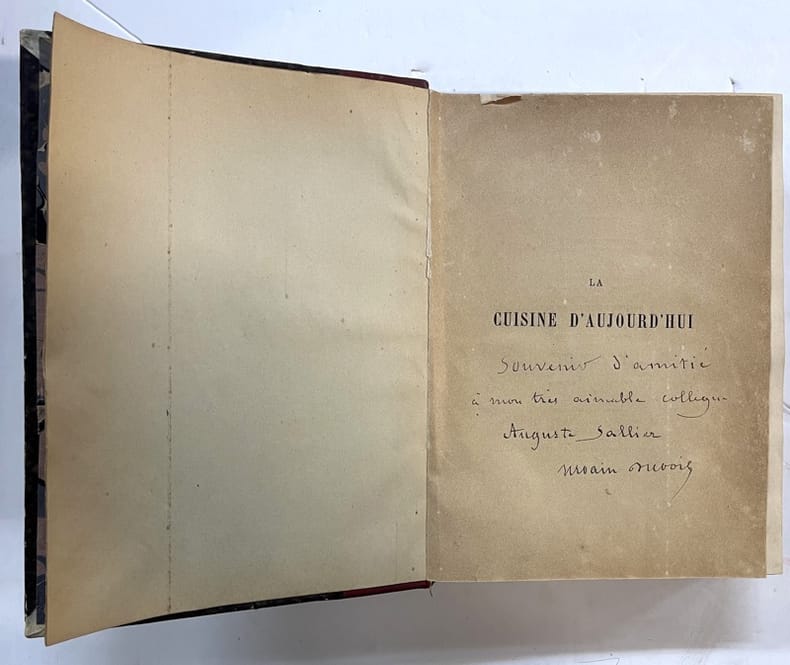 LA
CUISINE D'AUJOURD'HUI
Souvenir d'amitié
à mon très aimable collègue
Auguste Sallier
Urbain Dubois